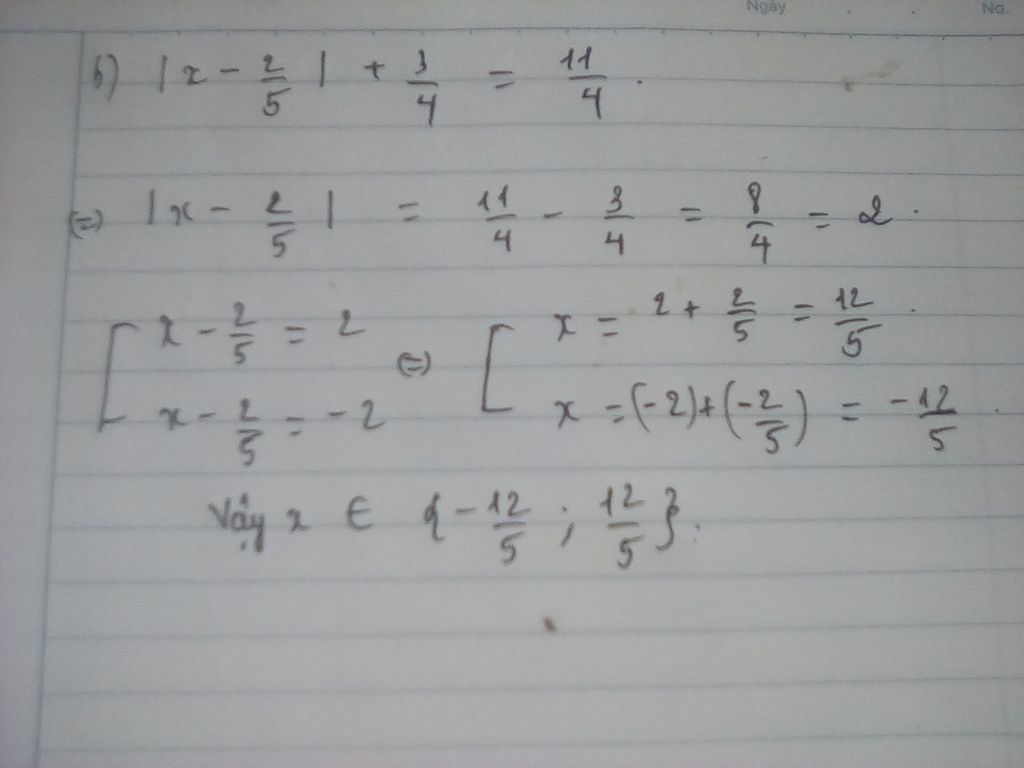 Ngày No.
b) |x - 2/5| + 3/4 = 11/4.
(=) |x - 2/5| = 11/4 - 3/4 = 8/4 = 2.
[ x - 2/5 = 2 (=) [ x = 2 + 2/5 = 12/5.
x - 2/5 = -2 x = (-2) + (-2/5) = -12/5.
Vậy x ∈ {-12/5 ; 12/5}.